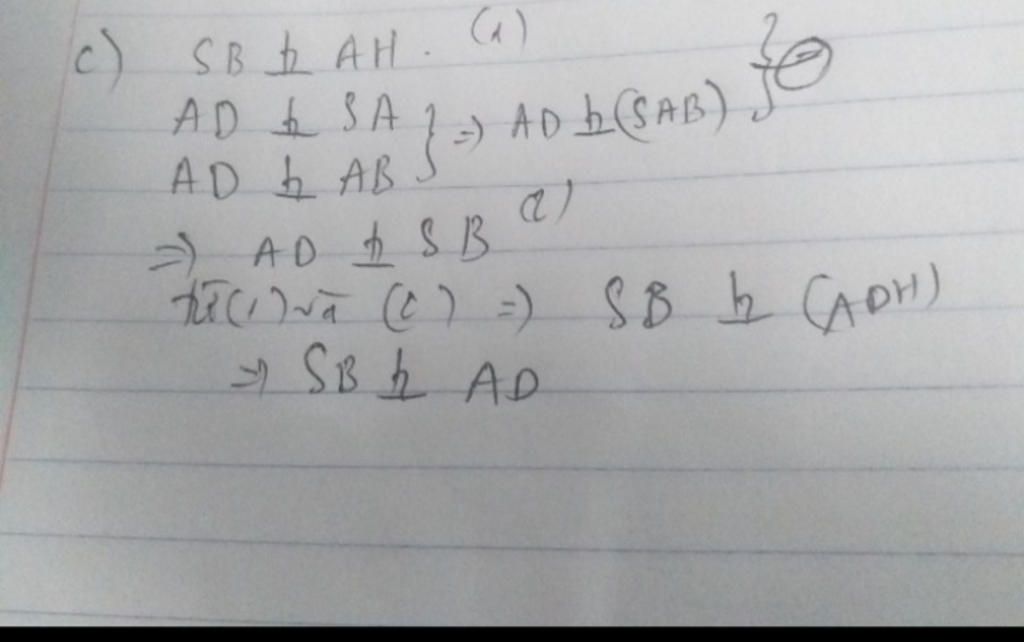 c) SB ⊥ AH. (1)
AD ⊥ SA } => AD ⊥ (SAB) }
AD ⊥ AB
=> AD ⊥ SB (2)
từ (1) và (2) => SB ⊥ (ADH)
=> SB ⊥ AD